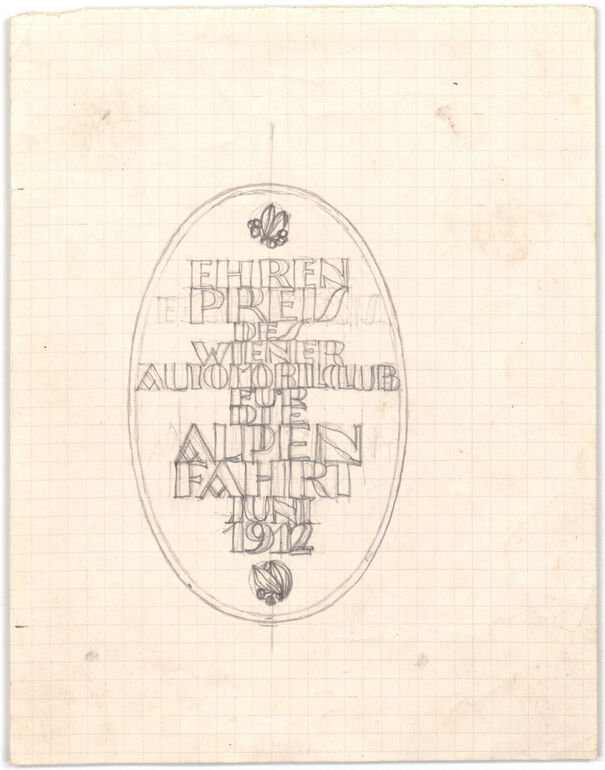 EHREN
PREIS
DES
WIENER
AUTOMOBILCLUB
FÜR
DIE
ALPEN
FAHRT
JUNI
1912